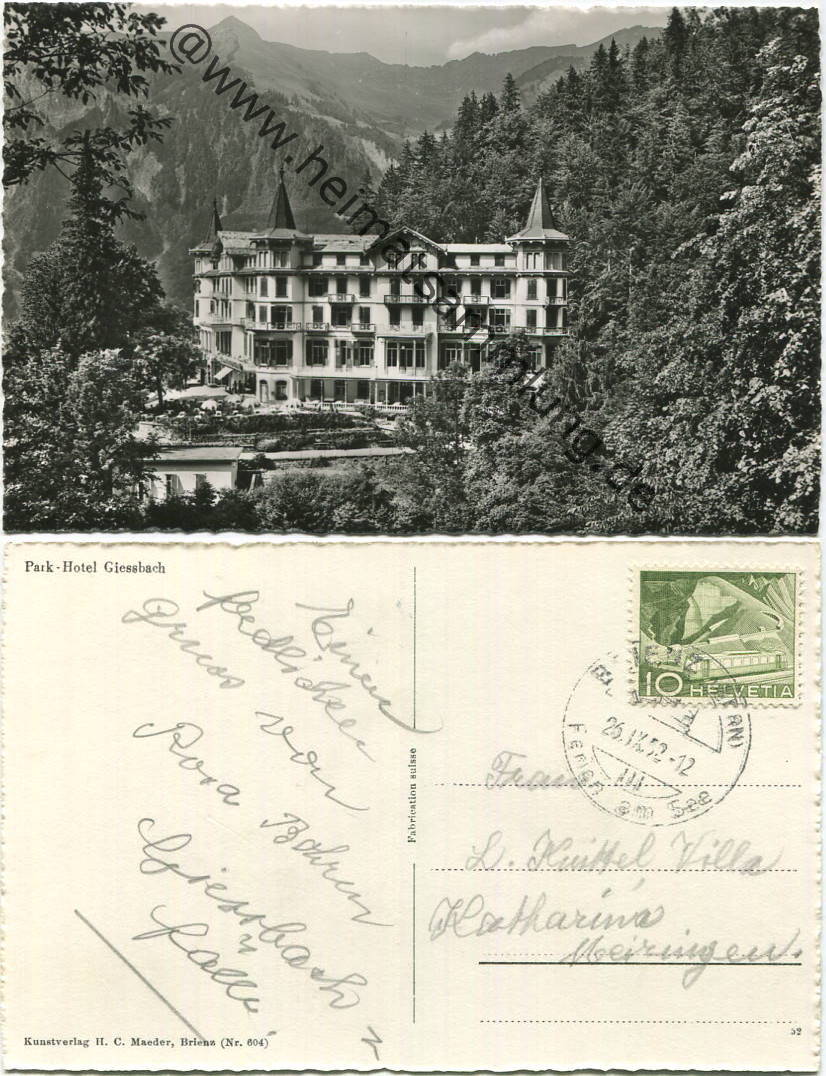 @www.heimatsammlung.de
Park-Hotel Giessbach
Einen
herzlichen
Gruss von
Rosa Bohren
Giessbach
Fabrication suisse
10 HELVETIA
(BERN)
26.IX.52-12
III
Ferien am See
Frau
L. Knittel Villa
Katharina
Meiringen.
Kunstverlag H. C. Maeder, Brienz (Nr. 604)
52